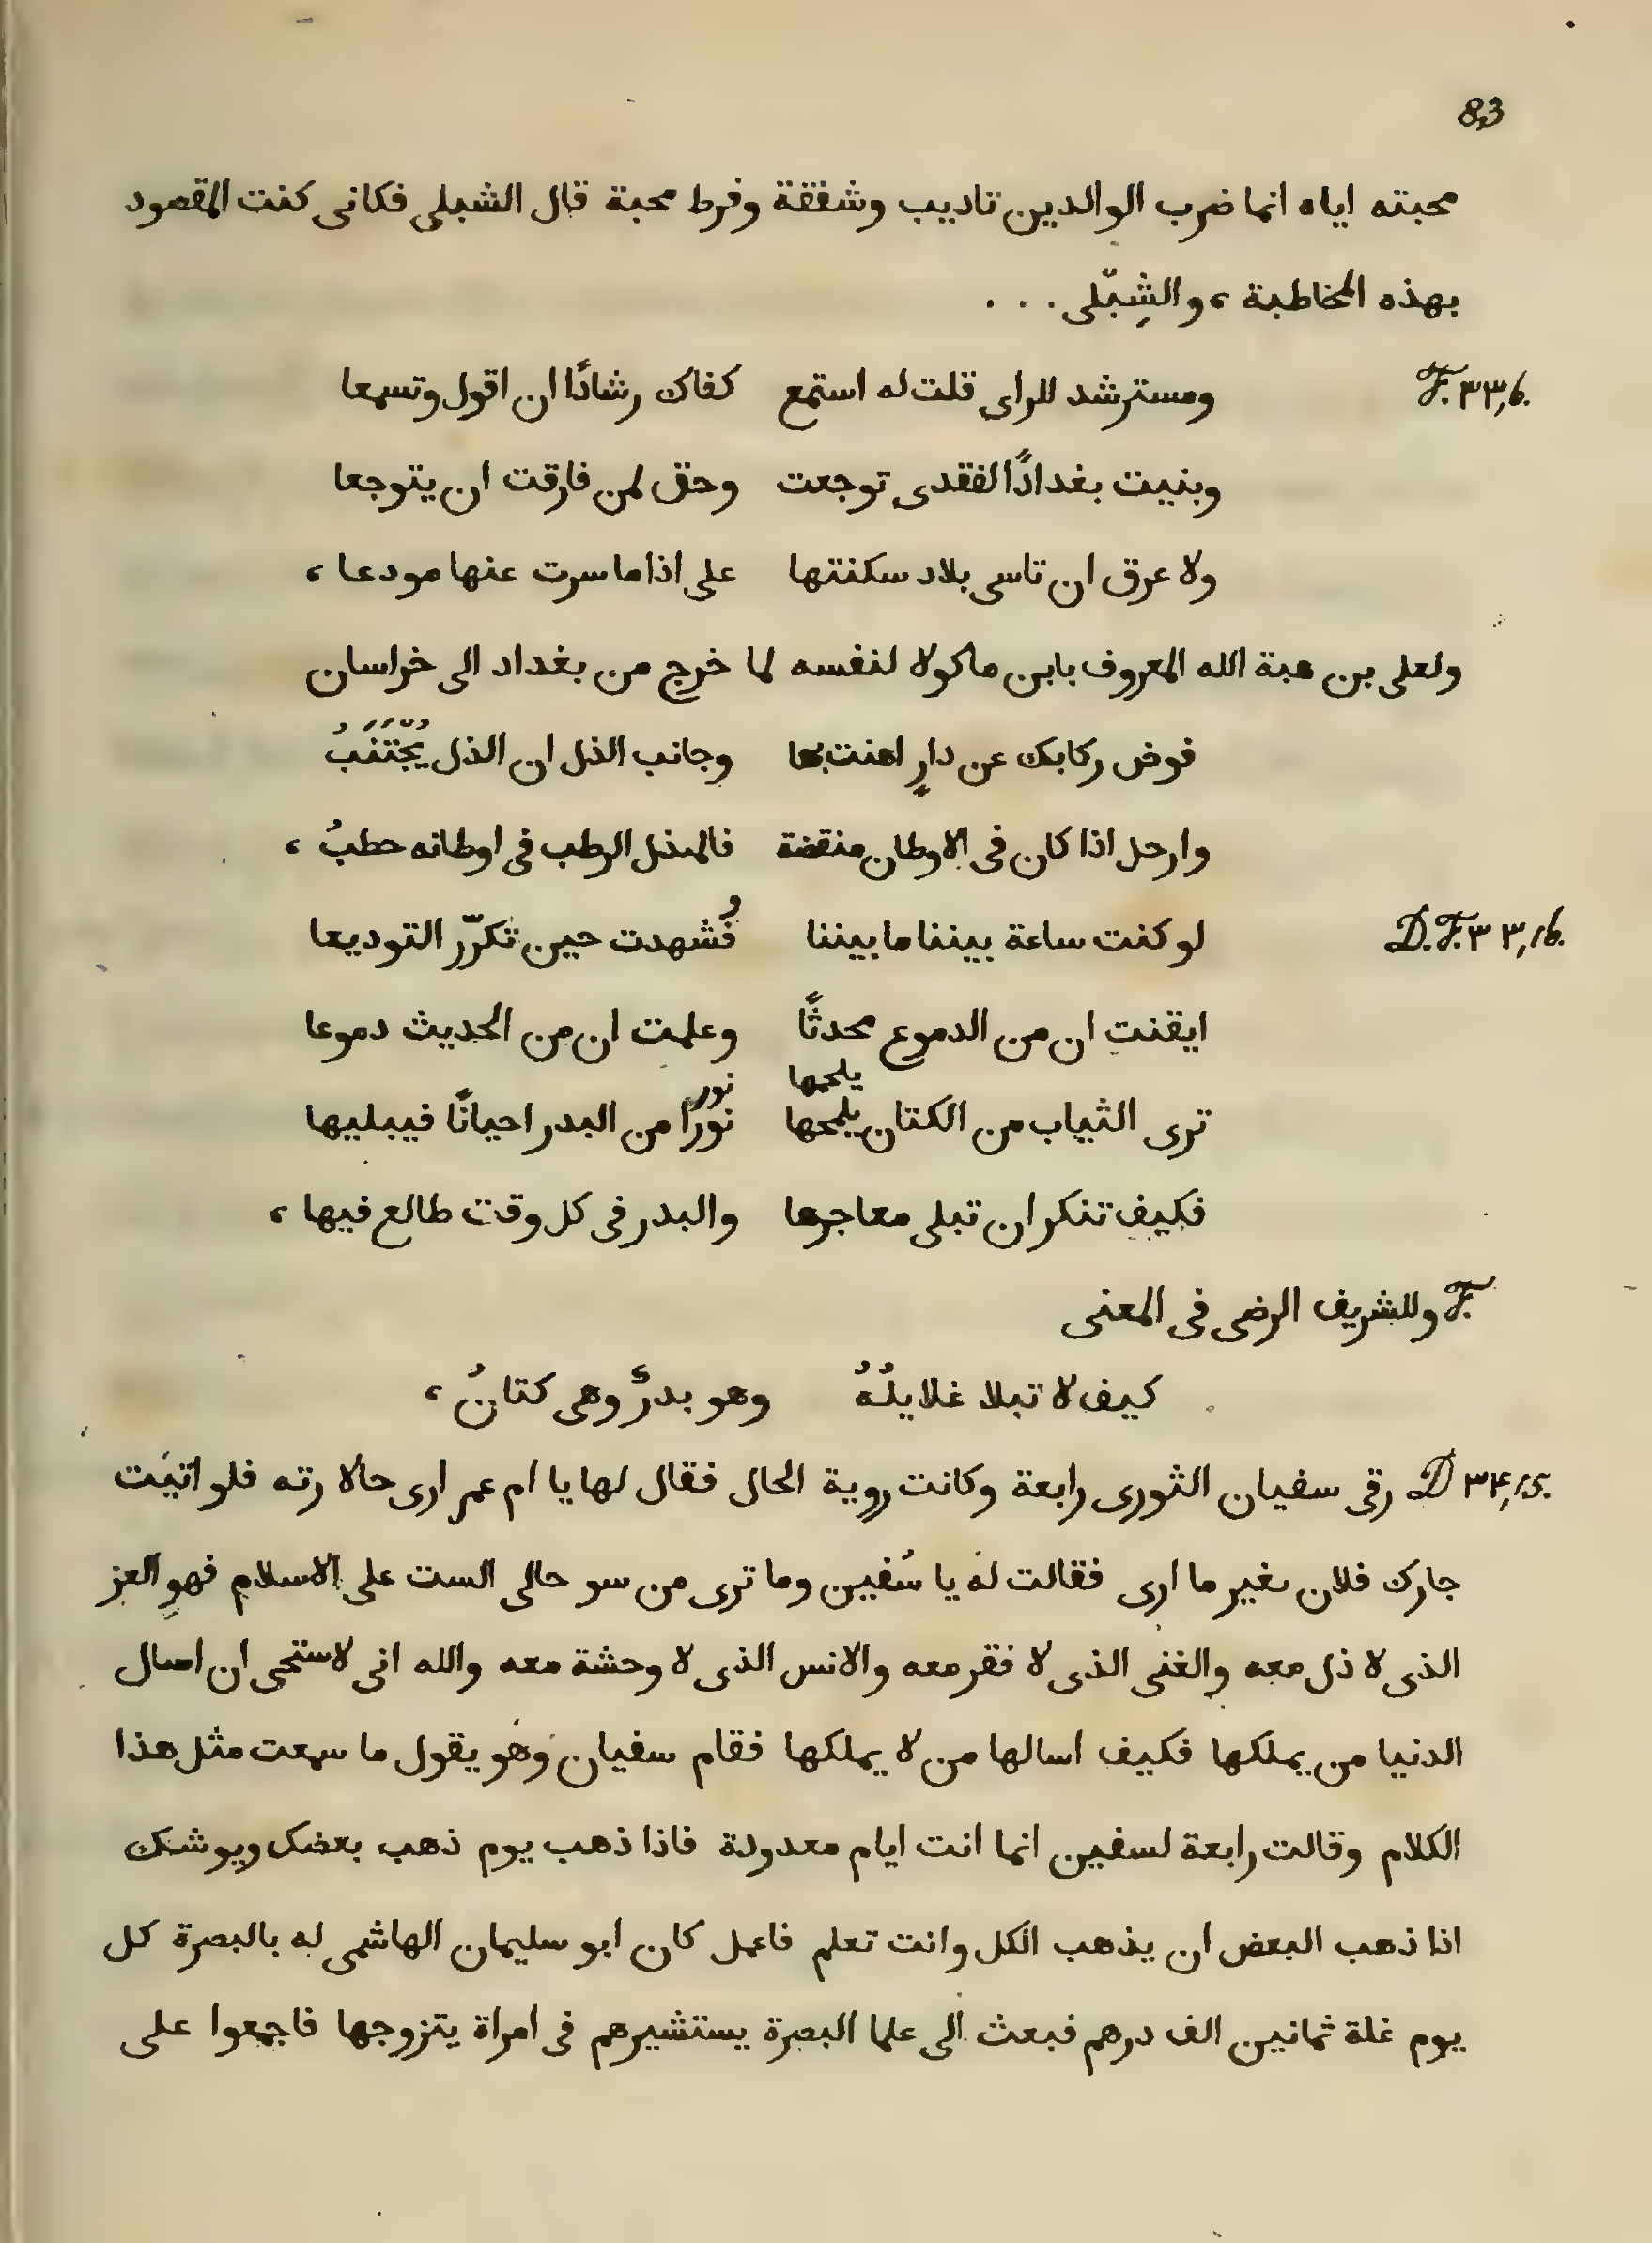 83
محبته اياه انما ضرب الوالدين تاديب وشفقة وفرط محبة قال الشبلى فكانى كنت المقصود
بهذه المخاطبة ، والشِبْلى . . .
F. ٣٣,6. ومسترشد للراى قلت له استمع كفاك رشادًا ان اقول وتسمعا
وبنيت بغدادًا لفقدى توجعت وحق لمن فارقت ان يتوجعا
ولا عرق ان تاسى بلاد سكنتها على اذا ما سرت عنها مودعا ،
ولعلى بن هبة الله المعروف بابن ماكولا لنفسه لما خرج من بغداد الى خراسان
فوض ركابك عن دارٍ اهنت بها وجانب الذل ان الذل يُجّتَنَبُ
وارحل اذا كان فى الاوطان منقضة فالمندل الرطب فى اوطانه حطبُ ،
D. F. ٣٣,16. لو كنت ساعة بيننا ما بيننا فُشهدت حين تكرّر التوديعا
و
ايقنت ان من الدموع محدثًا وعلمت ان من الحديث دموعا
يلحمها نور
ترى الثياب من الكتان يلمحها نورًا من البدر احيانًا فيبليها
فكيف تنكر ان تبلى معاجرها والبدر فى كل وقت طالع فيها ،
F. وللشريف الرضى فى المعنى
كيف لا تبلا غلايلُهُ وهو بدرٌ وهى كتانُ ،
D ٣٤,15. رقى سفيان الثورى رابعة وكانت روية الحال فقال لها يا ام عمر ارى حالا رته فلو اتيت
جارك فلان ىغير ما ارى فقالت له يا سُفين وما ترى من سو حالى الست على الاسلام فهو العز
الذى لا ذل معه والغنى الذى لا فقر معه والانس الذى لا وحشة معه والله انى لاستحى ان اسال
الدنيا من يملكها فكيف اسالها من لا يملكها فقام سفيان وهو يقول ما سمعت مثل هذا
الكلام وقالت رابعة لسفين انما انت ايام معدودة فاذا ذهب يوم ذهب بعضك ويوشك
اذا ذهب البعض ان يذهب الكل وانت تعلم فاعمل كان ابو سليمان الهاشمى له بالبصرة كل
يوم غلة ثمانين الف درهم فبعث الى علما البصرة يستشيرهم فى امراة يتزوجها فاجمعوا على